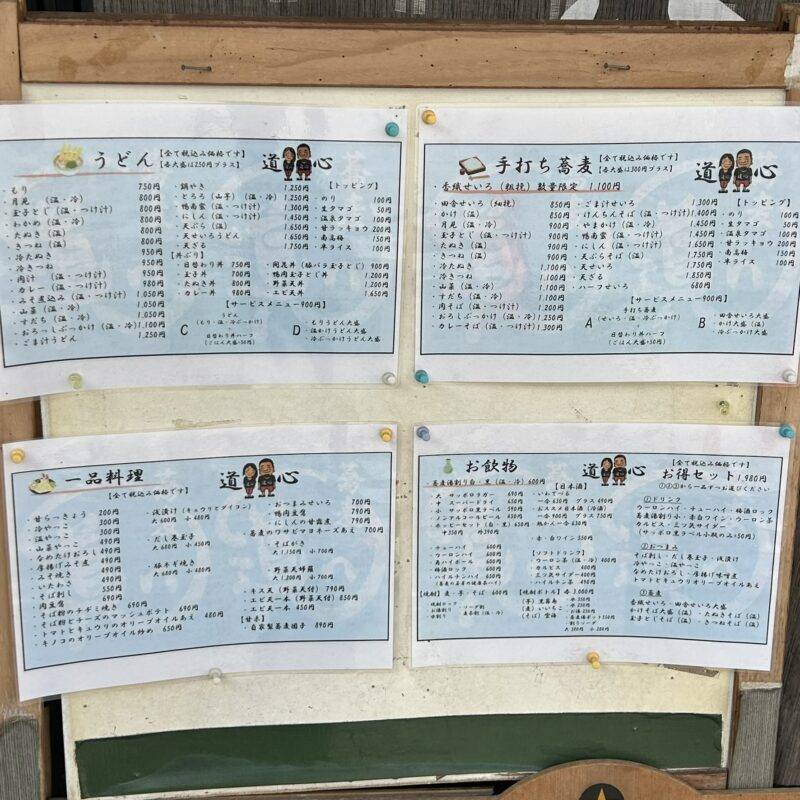 うどん
【全て税込み価格です】
【各大盛は250円プラス】
道 心
・もり 750円
・月見 (温・冷) 800円
・玉子とじ (温・つけ汁) 800円
・わかめ (温・冷) 800円
・たぬき (温) 800円
・きつね (温) 800円
・冷たぬき 950円
・冷きつね 950円
・肉汁 (温・つけ汁) 950円
・カレー (温・つけ汁) 980円
・みそ煮込み (温・つけ汁) 1,050円
・山菜 (温・冷) 1,050円
・すだち (温・冷) 1,050円
・おろしぶっかけ (温・冷) 1,100円
・ごま汁うどん 1,250円
・鍋やき 1,250円
・とろろ (山芋) (温・冷) 1,250円
・鴨南蛮 (温・つけ汁) 1,300円
・にしん (温・つけ汁) 1,450円
・天ぷら (温) 1,650円
・天せいろうどん 1,650円
・天ざる 1,750円
【丼ぶり】
・日替わり丼 750円
・玉子丼 700円
・たぬき丼 800円
・カレー丼 980円
・鴨肉玉子とじ丼 1,200円
・野菜天丼 1,200円
・エビ天丼 1,650円
【トッピング】
・のり 100円
・生タマゴ 50円
・温泉タマゴ 100円
・甘ラッキョウ 200円
・南高梅 150円
・半ライス 100円
【サービスメニュー900円】
C うどん
(もり・温・冷ぶっかけ)
日替わり丼ハーフ
(ごはん大盛+50円)
D ・もりうどん大盛
・温かけうどん大盛
・冷ぶっかけうどん大盛
手打ち蕎麦
【全て税込み価格です】
【各大盛は300円プラス】
道 心
・香織せいろ (粗挽) 数量限定 1,100円
・田舎せいろ (細挽) 850円
・かけ (温) 850円
・月見 (温・冷) 900円
・玉子とじ (温・つけ汁) 900円
・たぬき (温) 900円
・きつね (温) 900円
・冷たぬき 1,100円
・冷きつね 1,100円
・山菜 (温・冷) 1,150円
・すだち (温・冷) 1,100円
・肉そば (温・つけ汁) 1,100円
・おろしぶっかけ (温・冷) 1,250円
・カレーそば (温・つけ汁) 1,300円
・ごま汁せいろ 1,300円
・けんちんそば (温・つけ汁) 1,400円
・やまかけ (温・冷) 1,450円
・鴨南蛮 (温・つけ汁) 1,450円
・にしん (温・つけ汁) 1,650円
・天ぷらそば (温) 1,750円
・天せいろ 1,750円
・天ざる 1,850円
・ハーフせいろ 680円
【トッピング】
・のり 100円
・生タマゴ 50円
・温泉タマゴ 100円
・甘ラッキョウ 200円
・南高梅 150円
・半ライス 100円
【サービスメニュー900円】
A 手打ち蕎麦
(せいろ・温・冷ぶっかけ)
日替わり丼ハーフ
(ごはん大盛+50円)
B ・田舎せいろ大盛
・かけ大盛 (温)
・冷ぶっかけ大盛
一品料理
【全て税込み価格です】
道 心
・甘らっきょう 200円
・冷やっこ 300円
・温やっこ 300円
・山菜やっこ 490円
・なめたけおろし 490円
・厚揚げみそ煮 490円
・みそ焼き 490円
・いたわさ 490円
・そば刺し 550円
・肉豆腐 690円
・そば粉のチヂミ焼き 690円
・そば粉とチーズのマッシュポテト 690円
・トマトとキュウリのオリーブオイルあえ 480円
・キノコのオリーブオイル炒め 650円
・浅漬け (キュウリとダイコン)
大 600円 小 480円
・だし巻玉子
大 680円 小 450円
・鴨ネギ焼き
大 680円 小 480円
・おつまみせいろ 700円
・鴨肉豆腐 790円
・にしんの甘露煮 790円
・蕎麦のワサビマヨネーズあえ 700円
・そばがき
大 1,150円 小 700円
・野菜天婦羅
大 1,200円 小 700円
・キス天 (野菜天付) 790円
・エビ天一本 (野菜天付) 850円
・エビ天一本 450円
【甘味】
・自家製蕎麦団子 890円
お飲物
道 心
・蕎麦湯割り白・黒 (温・冷) 600円
・大 サッポロラガー 690円
・大 スーパードライ 650円
・小 サッポロ黒ラベル 590円
・ノンアルコールビール 430円
・ホッピーセット (白・黒) 650円
中 350円 外 390円
・チューハイ 600円
・ウーロンハイ 600円
・角ハイボール 600円
・梅酒ロック 600円
【日本酒】
・一合 630円 グラス 490円
・おススメ日本酒 (冷酒)
一合 900円 グラス 750円
・赤・白ワイン 550円
【ソフトドリンク】
・ウーロン茶 (温・冷) 400円
・コーラ 400円
・カルピス 400円
・三ツ矢サイダー 400円
【焼酎】 麦・芋・そば 600円
【焼酎ボトル】 各 3,000円
(芋) 黒霧島
(麦) いいちこ
(そば) 雲海
・割りソーダ
大 380円 小 280円
【全て税込み価格です】
お得セット 1,980円
①②③から一品ずつお選びください
①ドリンク
ウーロンハイ・チューハイ・梅酒ロック
蕎麦湯割り小・赤白ワイン・ウーロン茶
カルピス・三ツ矢サイダー・コーラ
(サッポロ黒ラベル小瓶のみ+50円)
②おつまみ
そば刺し・だし巻玉子・浅漬け
冷やっこ・温やっこ
なめたけおろし・厚揚げ味噌煮
トマトとキュウリオリーブオイルあえ
③蕎麦
香織せいろ・田舎せいろ大盛
かけそば大盛 (温)・たぬきそば (温)
玉子とじそば (温)・きつねそば (温)